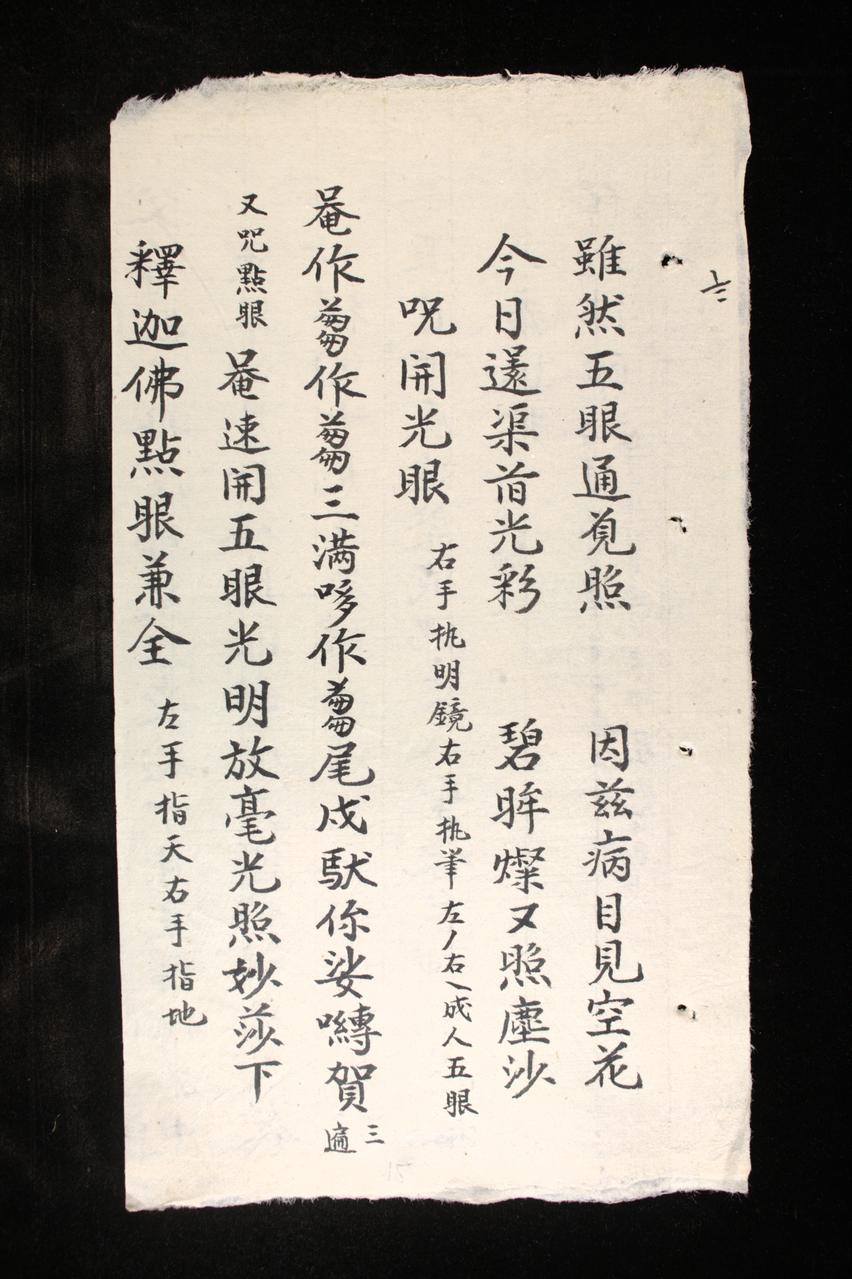 雖然五眼通𮗚照 因茲病目見空花
今日還渠旹光彩 碧眸燦又照塵沙
呪開光眼 右手执明鏡右手执筆左丿右乀成人五眼
唵作蒭作蒭三满哆作蒭尾戍馱你娑嚩賀三遍
又咒點眼 唵速開五眼光明放毫光照妙莎下
釋迦佛點眼兼全 左手指天右手指地